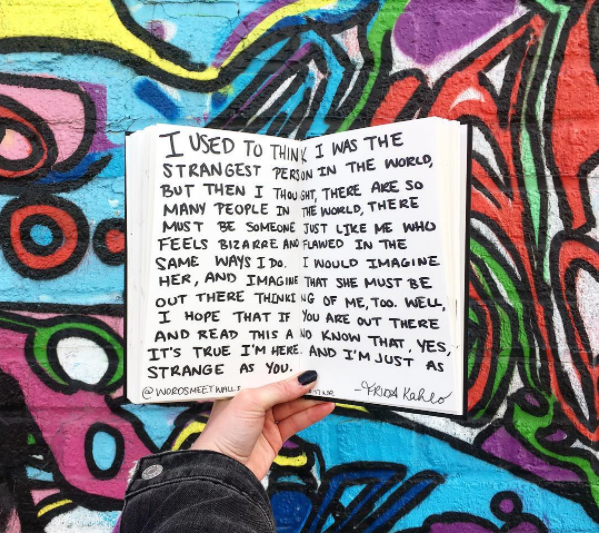 I USED TO THINK I WAS THE
STRANGEST PERSON IN THE WORLD,
BUT THEN I THOUGHT, THERE ARE SO
MANY PEOPLE IN THE WORLD, THERE
MUST BE SOMEONE JUST LIKE ME WHO
FEELS BIZARRE AND FLAWED IN THE
SAME WAYS I DO. I WOULD IMAGINE
HER, AND IMAGINE THAT SHE MUST BE
OUT THERE THINKING OF ME, TOO. WELL,
I HOPE THAT IF YOU ARE OUT THERE
AND READ THIS AND KNOW THAT, YES,
IT'S TRUE I'M HERE. AND I'M JUST AS
STRANGE AS YOU.
-FRIDA Kahlo